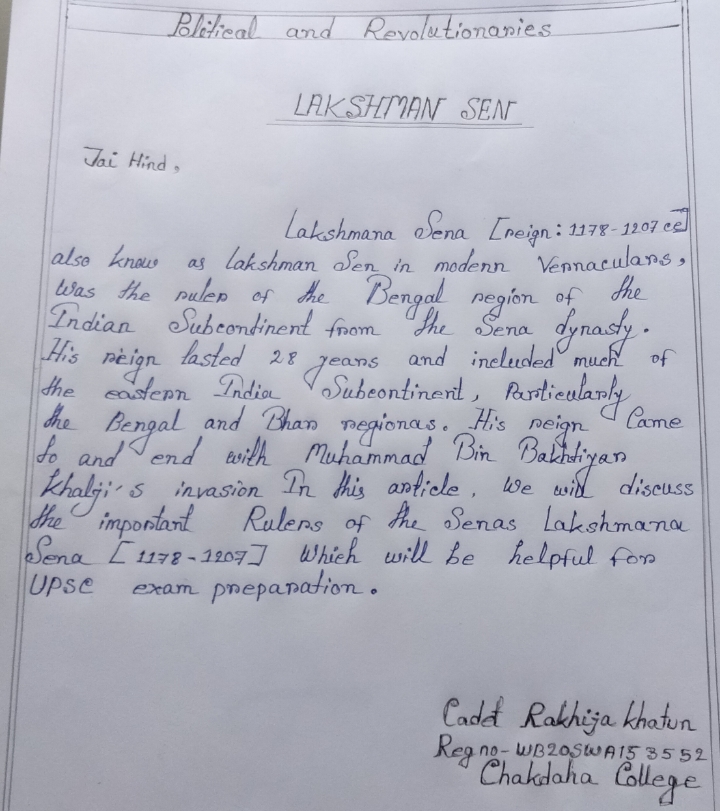 Political and Revolutionaries
LAKSHMAN SEN
Jai Hind,
Lakshmana Sena [reign: 1178-1207 ce]
also know as Lakshman Sen in modern Vernaculars,
Was the ruler of the Bengal region of the
Indian Subcontinent from the Sena dynasty.
His reign lasted 28 years and included much of
the eastern India Subcontinent, Particularly
the Bengal and Bhar regionas. His reign Came
to and end with Muhammad Bin Bakhtiyar
Khalgi's invasion In this article, We will discuss
the important Rulers of the Senas Lakshmana
Sena [1178-1207] Which will be helpful for
UPSC exam preparation.
Cadet Rakhija Khatun
Reg no- WB20SWA153552
Chakdaha College